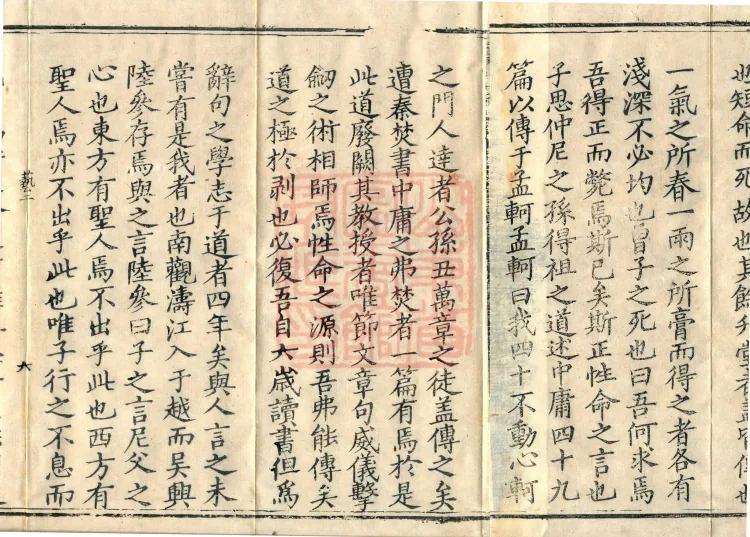 也短命而死故也其餘升堂者蓋皆傳也
一氣之所春一雨之所膏而得之者各有
淺深不必均也曽子之死也曰吾何求焉
吾得正而斃焉斯已矣斯正性命之言也
子思仲尼之孫得祖之道述中庸四十九
篇以傳于孟軻孟軻曰我四十不動心軻
之門人達者公孫丑萬章之徒盖傳之矣
遭秦焚書中庸之弗焚者一篇有焉於是
此道廢闕其教授者唯節文章句威儀擊
劒之術相師焉性命之源則吾弗能傳矣
道之極於剥也必復吾自六歳讀書但爲
辭句之學志于道者四年矣與人言之未
嘗有是我者也南觀濤江入于越而吳興
陸參存焉與之言陸參曰子之言尼父之
心也東方有聖人焉不出乎此也西方有
聖人焉亦不出乎此也唯子行之不息而
藝二
六